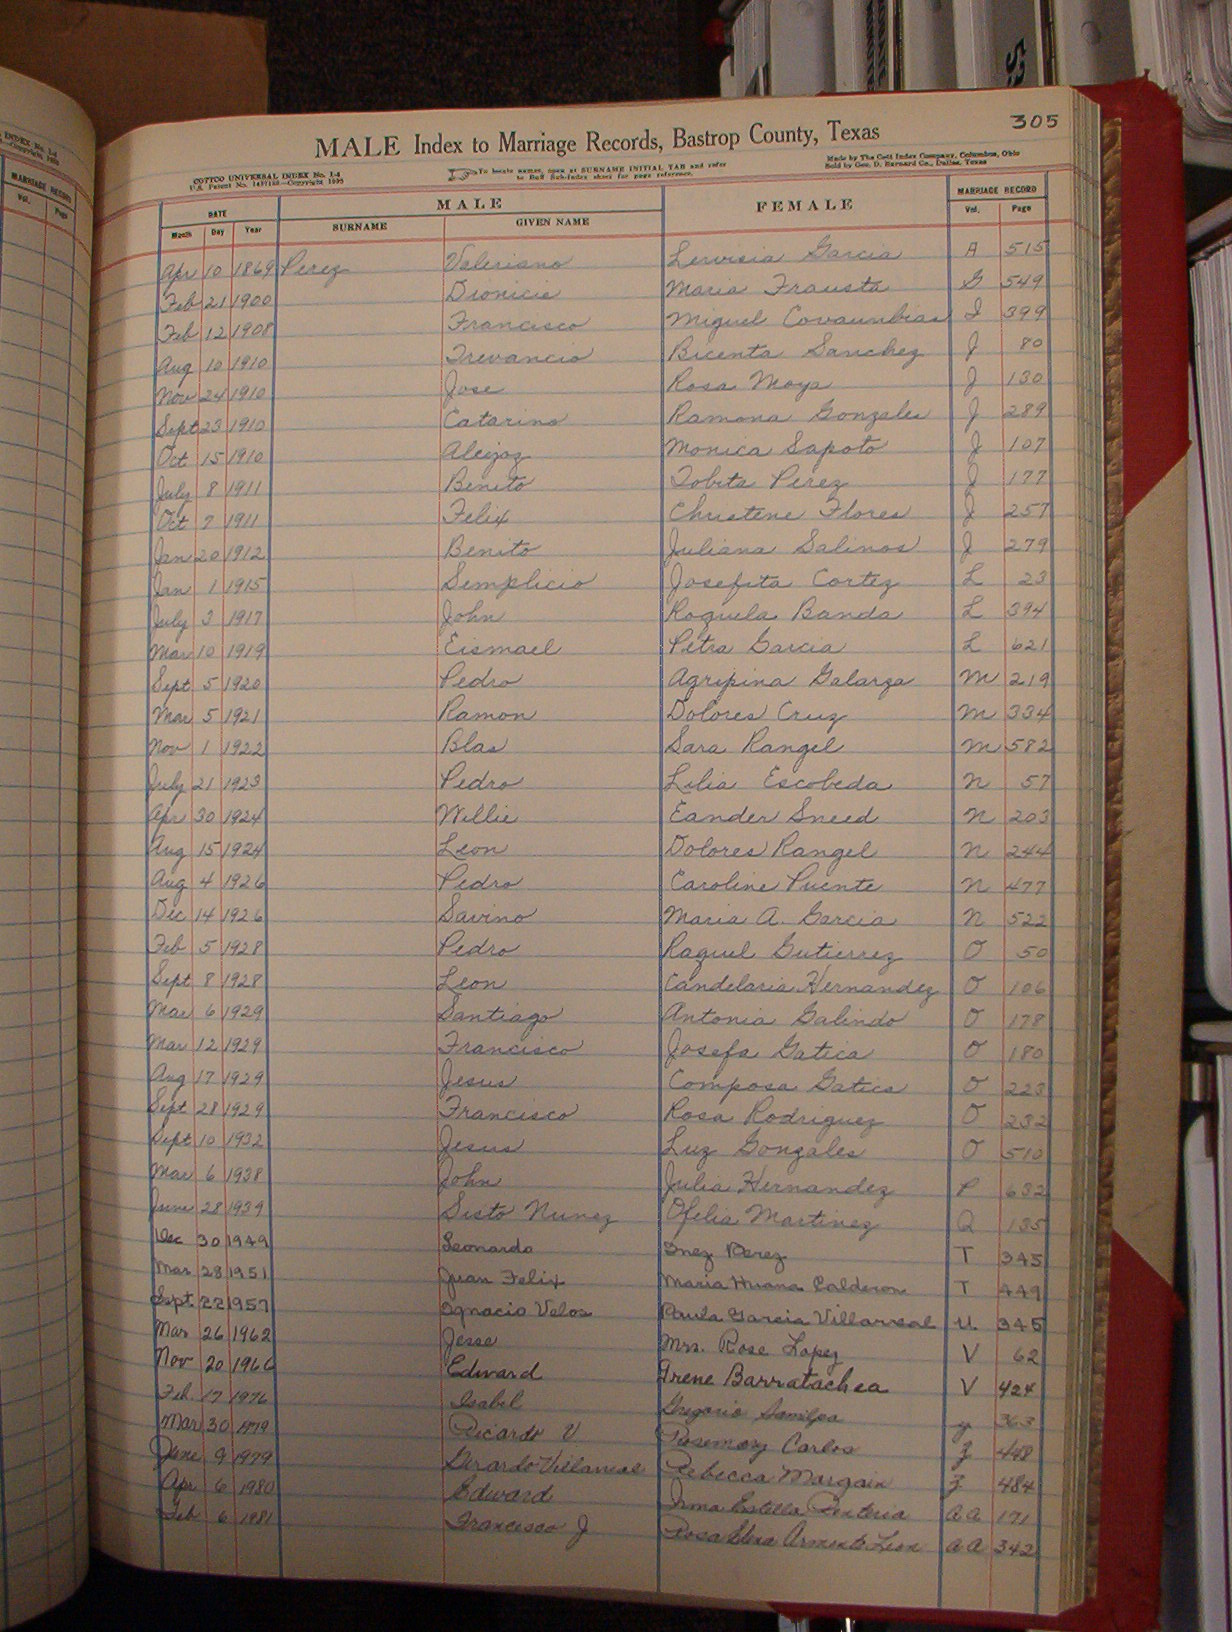 305
MALE Index to Marriage Records, Bastrop County, Texas
COTTCO UNIVERSAL INDEX No. 1-4
U.S. Patent No. —Copyright
To locate names, open at SURNAME INITIAL TAB and refer
to Buff Sub-Index sheet for page reference.
Made by The Cott Index Company, Columbus, Ohio
Sold by Geo. D. Barnard Co., Dallas, Texas
DATE MALE FEMALE MARRIAGE RECORD
Month Day Year SURNAME GIVEN NAME Vol. Page
Apr 10 1869 Perez Valeriano Garcia A 515
Feb 21 1900 Dionicio Maria Frausta G 549
Feb 12 1908 Francisco Miguel I 399
Aug 10 1910 Trevancio Bicenta Sanchez J 80
Nov 24 1910 Jose Rosa Moya J 130
Sept 23 1910 Catarino Ramona Gonzales J 289
Oct 15 1910 Monica Sapoto J 107
July 8 1911 Benito Tobita Perez J 177
Oct 7 1911 Felix Christene Flores J 257
Jan 20 1912 Benito Juliana Salinos J 279
Jan 1 1915 Semplicio Josefita Cortez L 23
July 3 1917 John Roquela Banda L 394
Mar 10 1919 Eismael Petra Garcia L 621
Sept 5 1920 Pedro Agripina Galarza M 219
Mar 5 1921 Ramon Dolores Cruz M 334
Nov 1 1922 Blas Sara Rangel M 582
July 21 1923 Pedro Lilia Escobeda N 57
Apr 30 1924 Willie Eander Sneed N 203
Aug 15 1924 Leon Dolores Rangel N 244
Aug 4 1926 Pedro Caroline Puente N 477
Dec 14 1926 Savino Maria A. Garcia N 522
Feb 5 1928 Pedro Raquel Gutierrez O 50
Sept 8 1928 Leon Candelaria Hernandez O 106
Mar 6 1929 Santiago Antonia Galindo O 178
Mar 12 1929 Francisco Josefa Gatica O 180
Aug 17 1929 Jesus Composa Gatica O 223
Sept 28 1929 Francisco Rosa Rodriguez O 232
Sept 10 1932 Jesus Luz Gonzales O 510
Mar 6 1938 John Julia Hernandez P 632
June 28 1939 Sisto Nunez Ofelia Martinez Q 135
Dec 30 1949 Leonardo Inez Perez T 345
Mar 28 1951 Juan Felix Maria Huana Calderon T 449
Sept 22 1957 Ignacio Velos Paula Garcia Villarreal U 345
Mar 26 1962 Jesse Mrs. Rose Lopez V 62
Nov 20 1966 Edward Irene Barratachea V 424
Feb. 17 1976 Isabel Gregoria Y 363
Mar 30 1979 Ricardo V Rosemary Carlos Z 448
June 9 1979 Gerardo Villarreal Rebecca Margain Z 484
Apr 6 1980 Edward Irma Estella Renteria AA 171
Feb 6 1981 Francisco J Rosa Leon AA 342
INDEX No. 1-4
MARRIAGE RECORD
Vol. Page